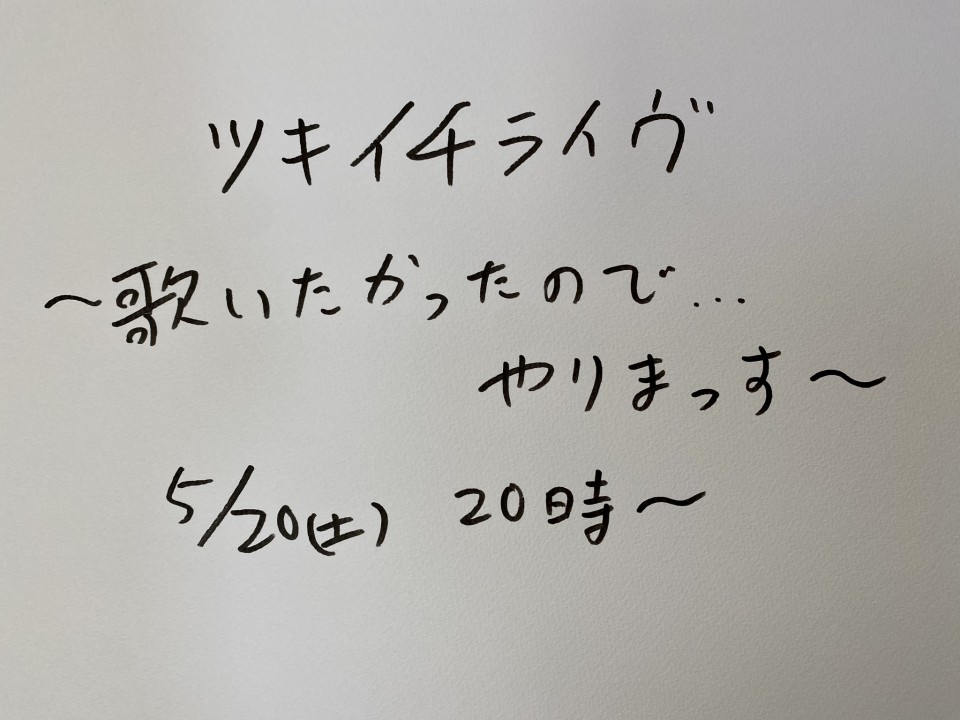 ツキイチライヴ
〜歌いたかったので…
やりまっす〜
5/20(土) 20時〜